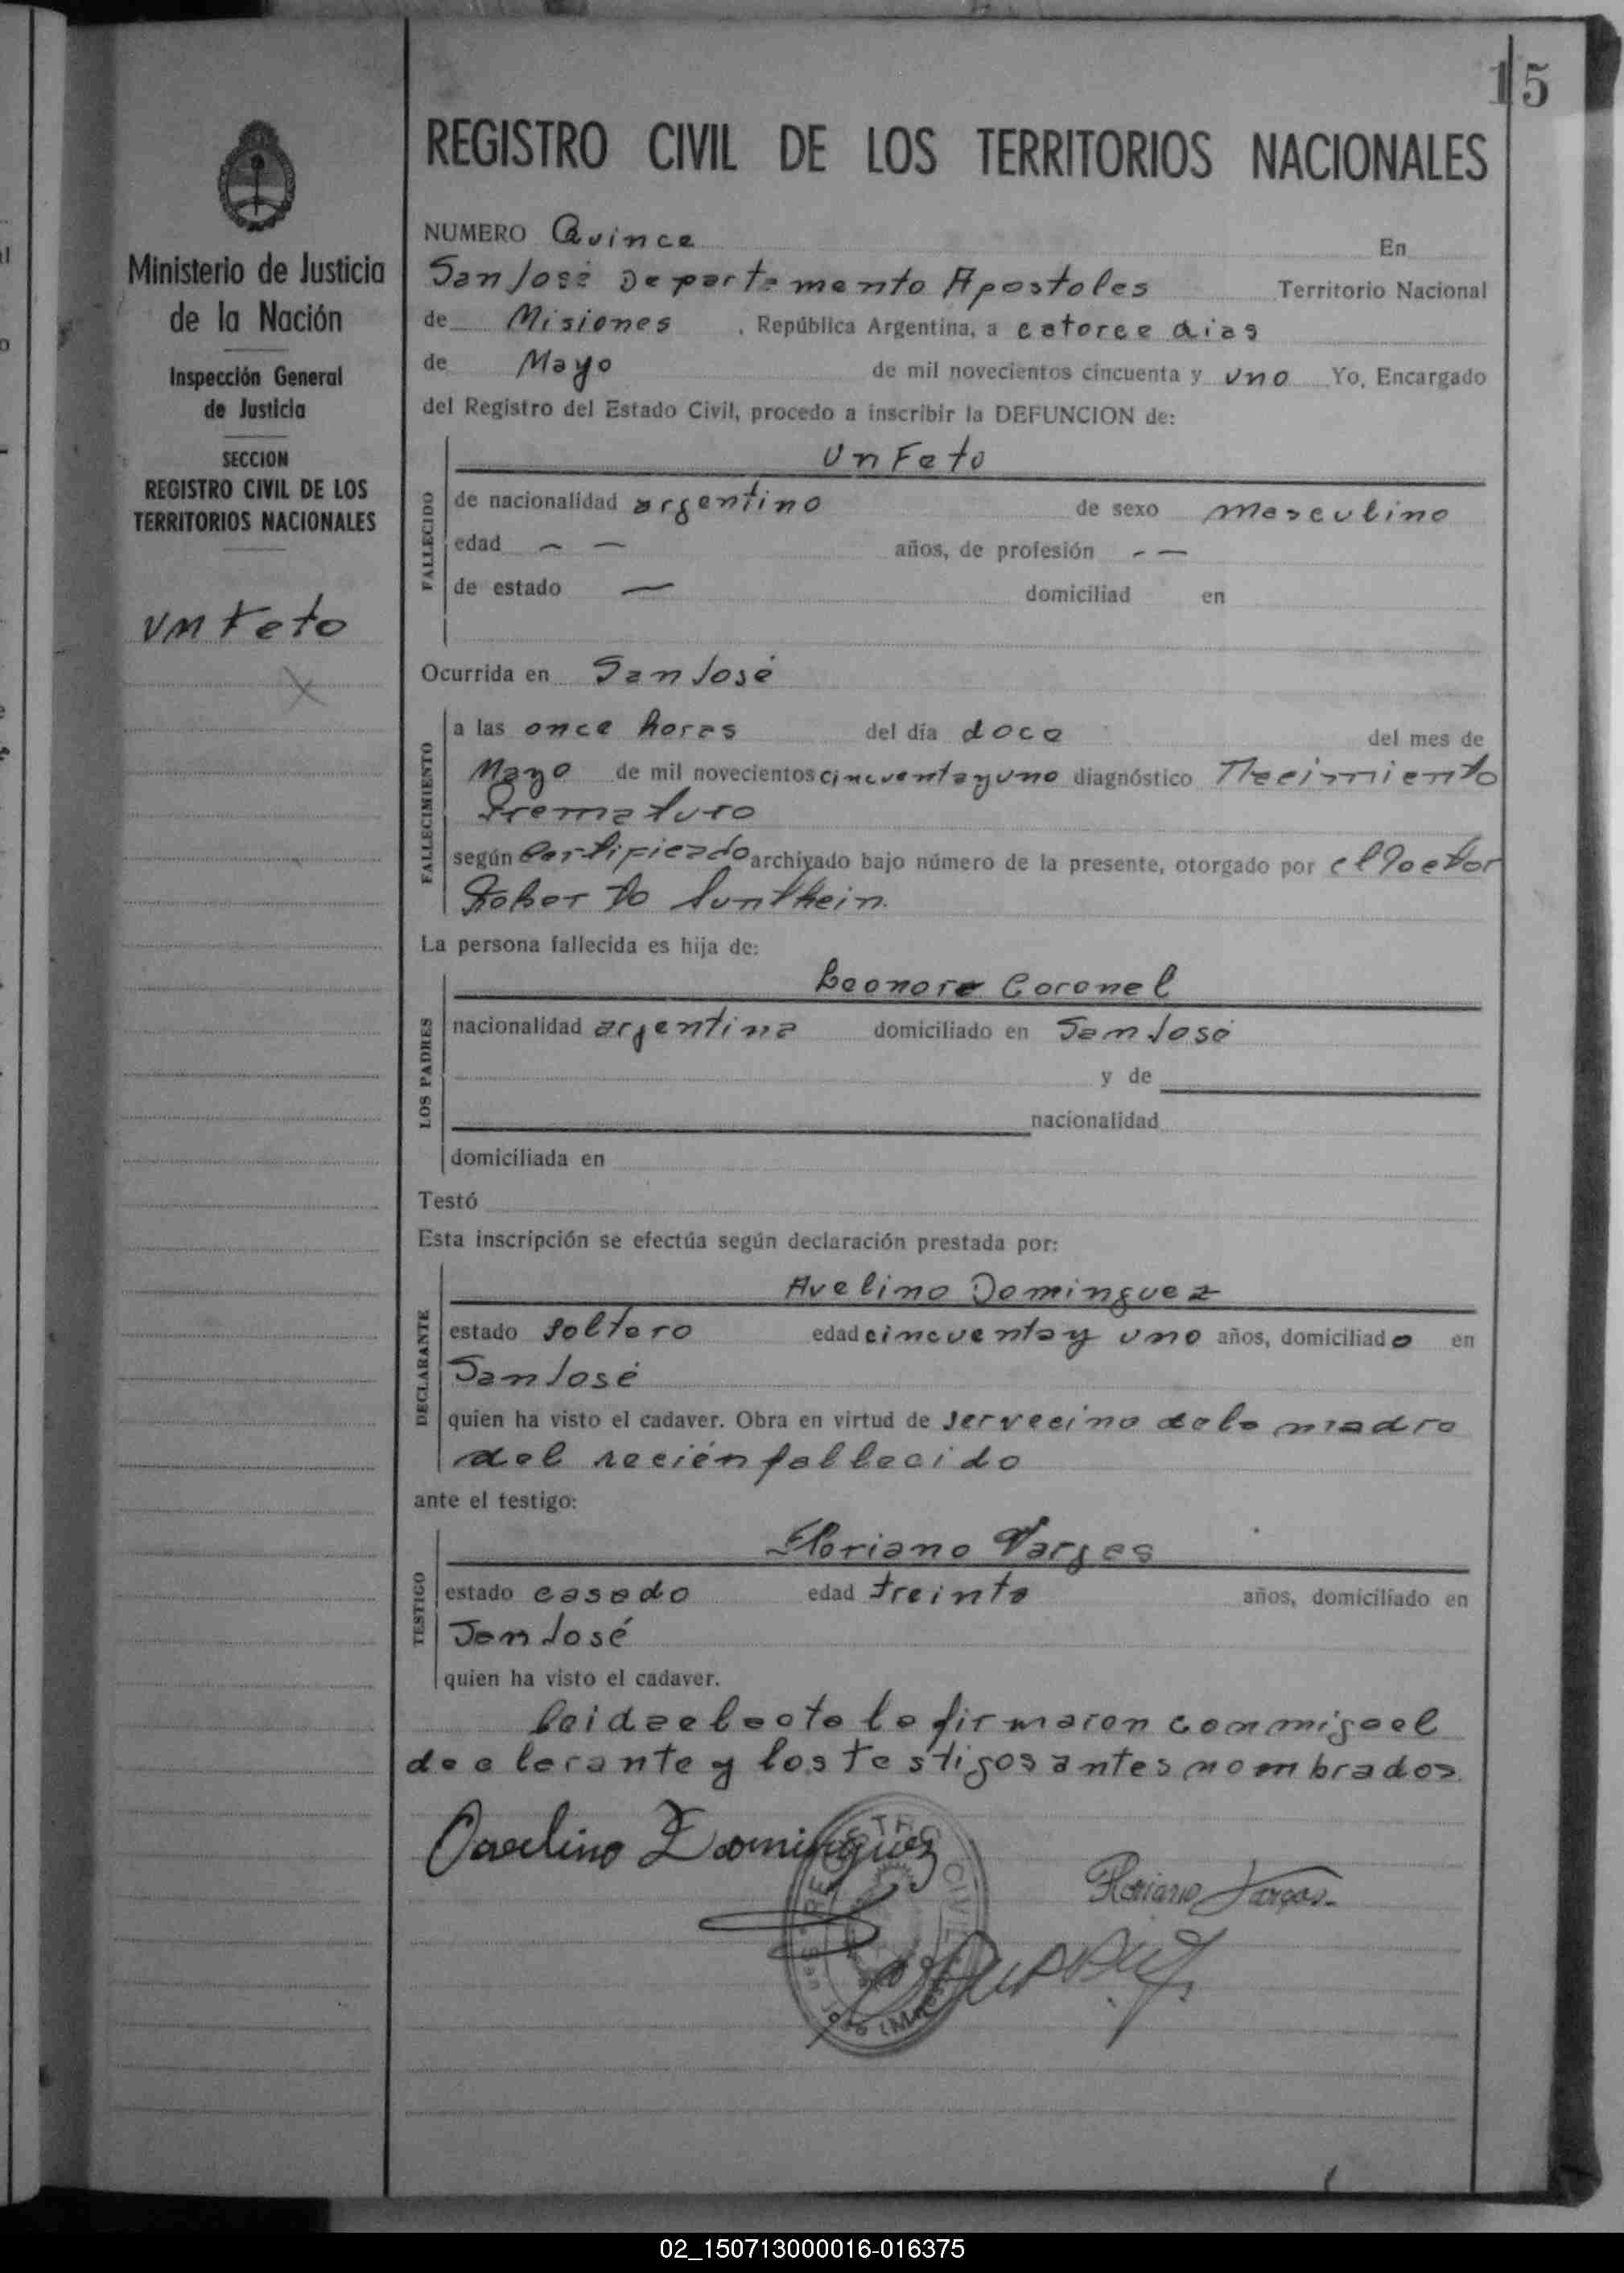 15
REGISTRO CIVIL DE LOS TERRITORIOS NACIONALES
Ministerio de Justicia
de la Nación
Inspección General
de Justicia
SECCION
REGISTRO CIVIL DE LOS
TERRITORIOS NACIONALES
un Feto
NUMERO Quince En
San José Departamento Apostoles Territorio Nacional
de Misiones , República Argentina, a catorce dias
de Mayo de mil novecientos cincuenta y uno Yo, Encargado
del Registro del Estado Civil, procedo a inscribir la DEFUNCION de:
Un Feto
FALLECIDO
de nacionalidad argentino de sexo masculino
edad — — años, de profesión - —
de estado — domiciliad en
Ocurrida en San José
FALLECIMIENTO
a las once horas del día doce del mes de
Mayo de mil novecientos cincuenta y uno diagnóstico Nacimiento
Prematuro
según Certificado archivado bajo número de la presente, otorgado por el Doctor
Roberto Sunthein.
La persona fallecida es hija de:
LOS PADRES
Leonora Coronel
nacionalidad argentina domiciliado en San José
y de
nacionalidad
domiciliada en
Testó
Esta inscripción se efectúa según declaración prestada por:
DECLARANTE
Avelino Dominguez
estado soltero edad cincuenta y uno años, domiciliado en
San José
quien ha visto el cadaver. Obra en virtud de ser vecino de la madre
del recién fallecido
ante el testigo:
TESTIGO
Floriano Vargas
estado casado edad treinta años, domiciliado en
San José
quien ha visto el cadaver.
Leida el acta la firmaron conmigo el
declarante y los testigos antes nombrados.
Avelino Dominguez
Floriano Vargas.
02_150713000016-016375